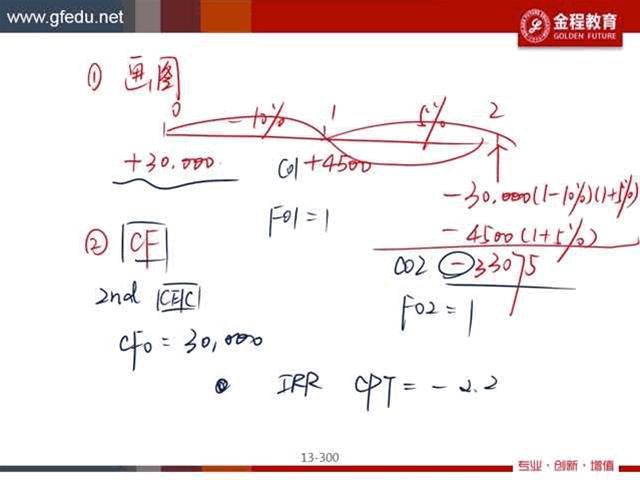 www.gfedu.net
金程教育
GOLDEN FUTURE
① 画图
0 -10% 1 5% 2
+30.000 C01 +4500
-30.000(1-10%)(1+5%)
F01=1
-4500(1+5%)
② CF
C02 -33075
2nd CE|C
F02=1
CF0=30,000
IRR CPT=-2.2
13-300
专业·创新·增值